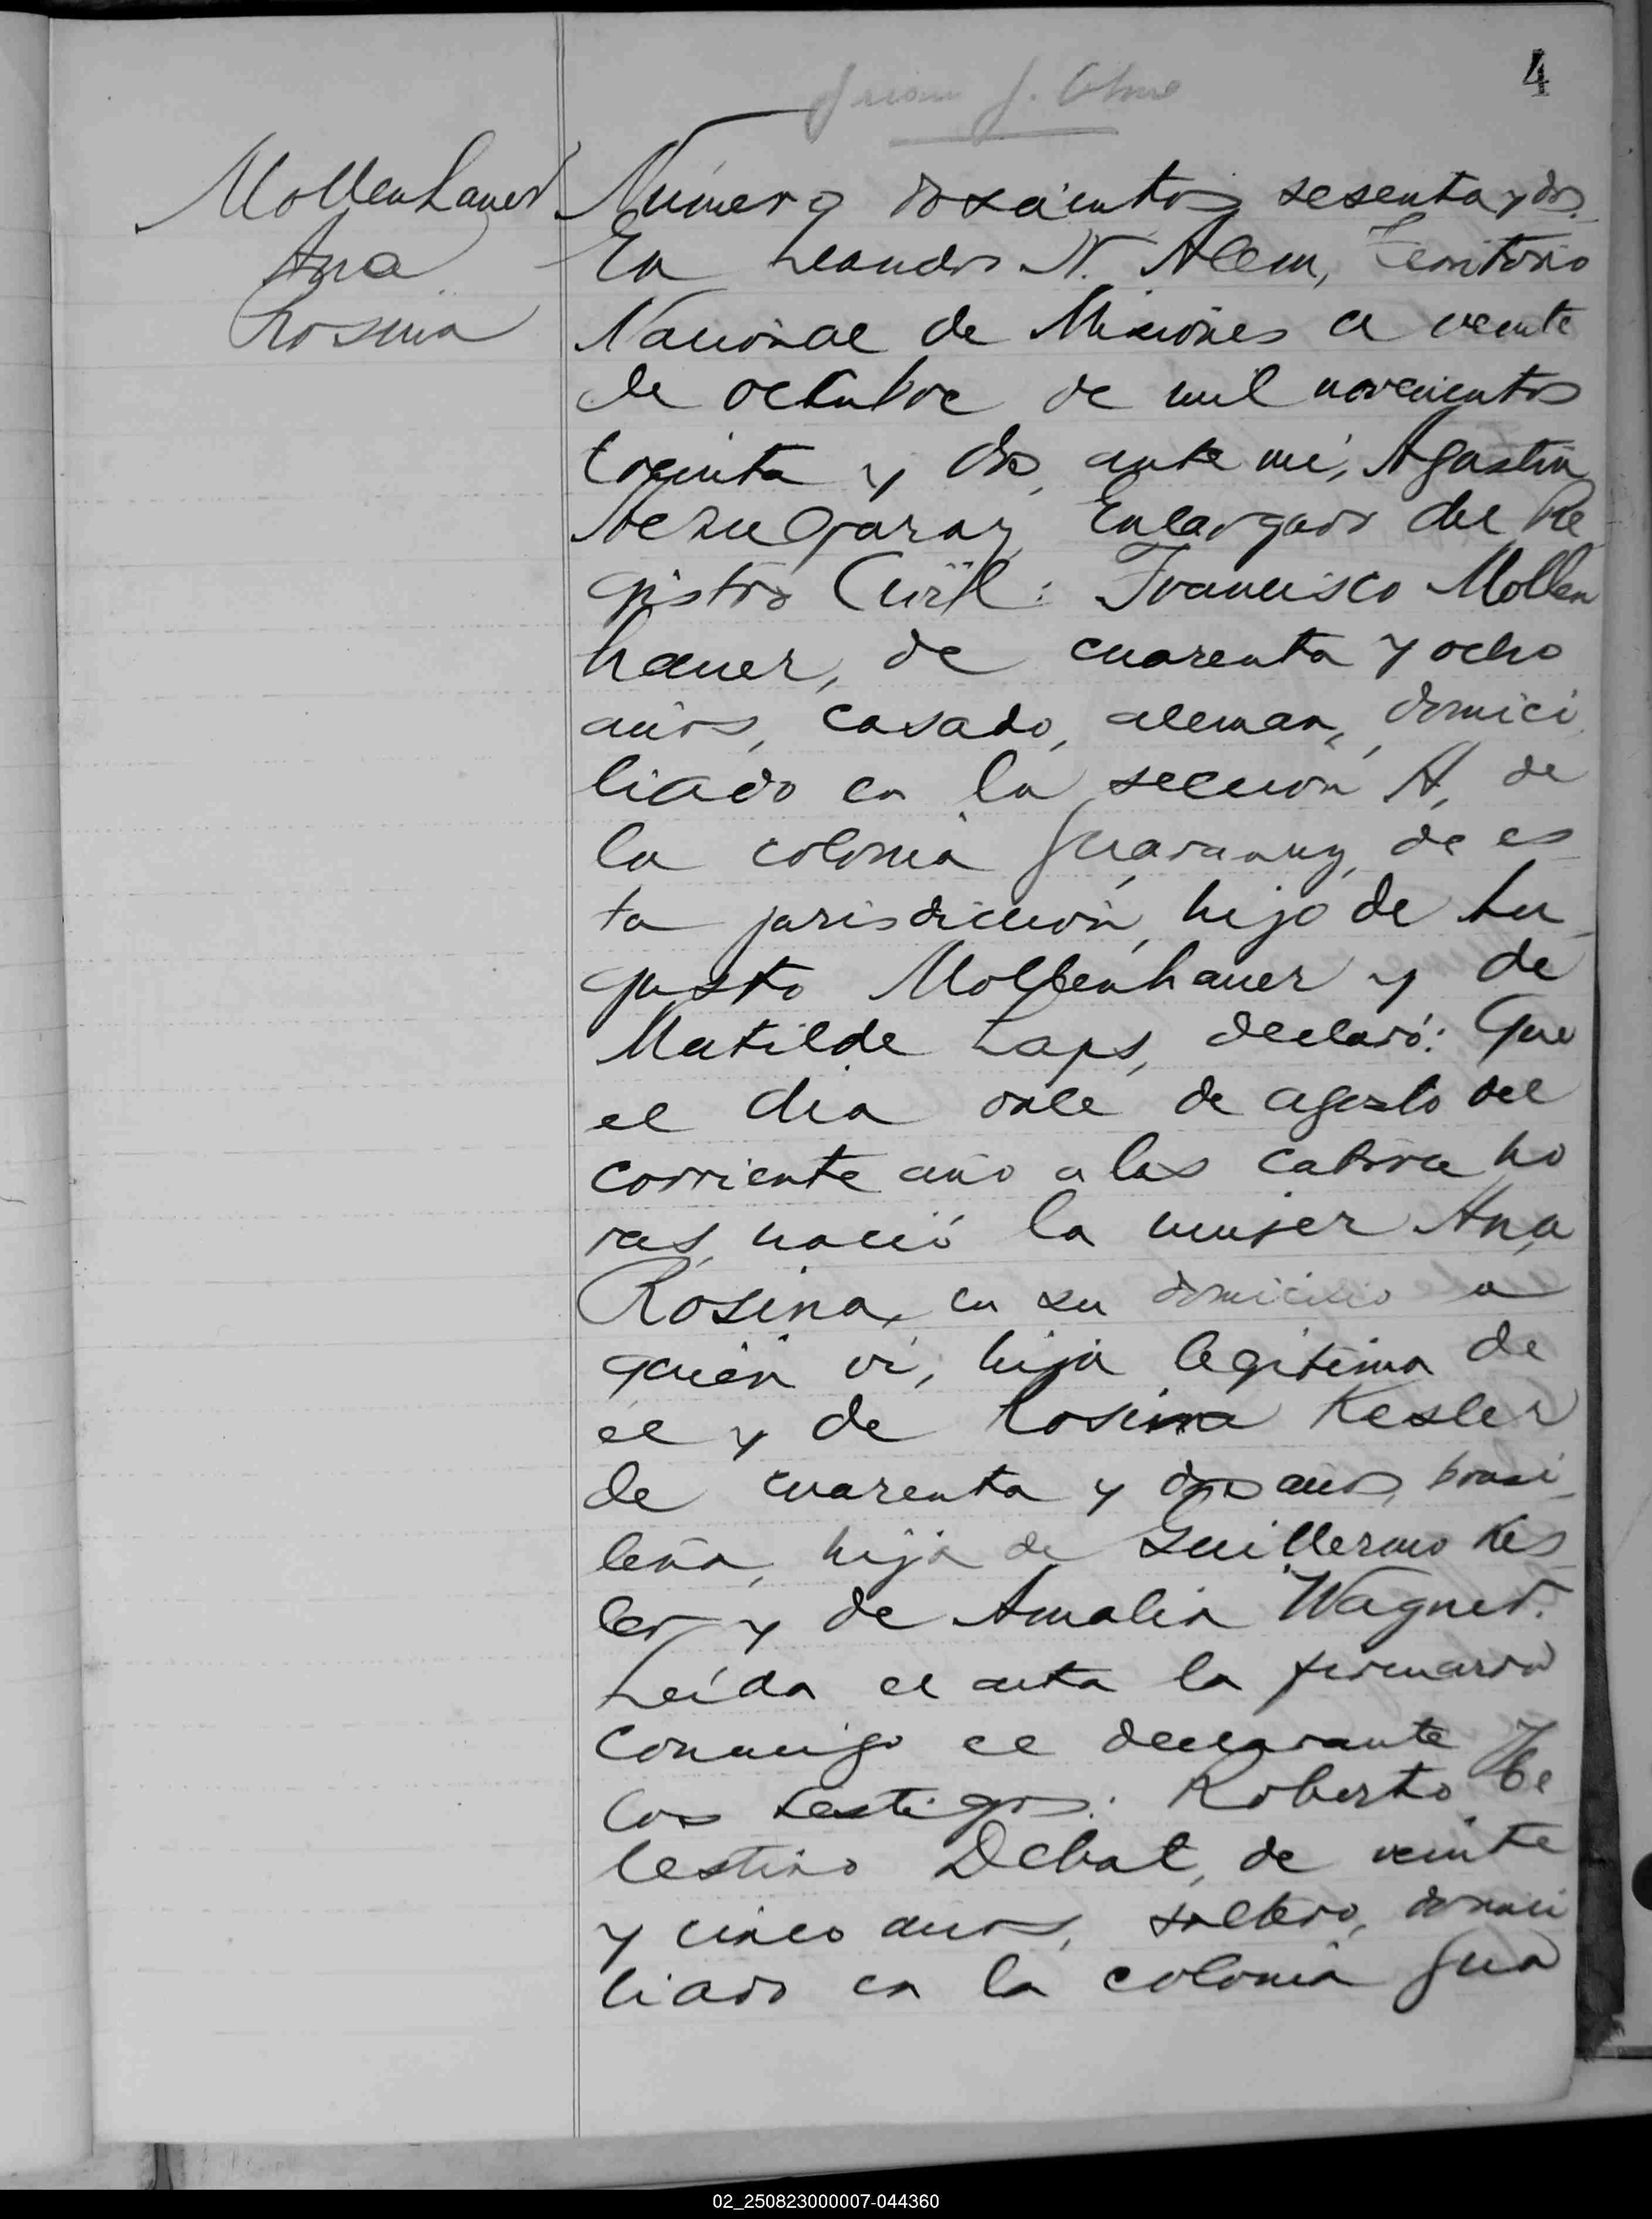 4
Mollenhauer
Ana
Rosina
Número doscientos sesenta y dos.
En Leandro N. Alem, Territorio
Nacional de Misiones a veinte
de octubre de mil novecientos
treinta y dos, ante mi, Agustín
Encargado del Re
gistro Civil: Francisco Mollen
hauer, de cuarenta y ocho
años, casado, aleman, domici
liado en la sección A, de
la colonia Guarany, de es
ta jurisdicción, hijo de Au
gusto Mollenhauer y de
Matilde Laps, declaró: Que
el dia once de agosto del
corriente año a las catorce ho
ras, nació la mujer Ana
Rosina, en su domicilio a
quien vi, hija legitima de
el y de Rosina Kesler
de cuarenta y dos años, brasi
leña, hija de Guillermo Kes
ler y de Amalia Wagner.
Leída el acta la firmaron
conmigo el declarante y
los testigos: Roberto Ce
lestino Debat, de veinte
y cinco años, soltero, domici
liado en la colonia Gua
02_250823000007-044360